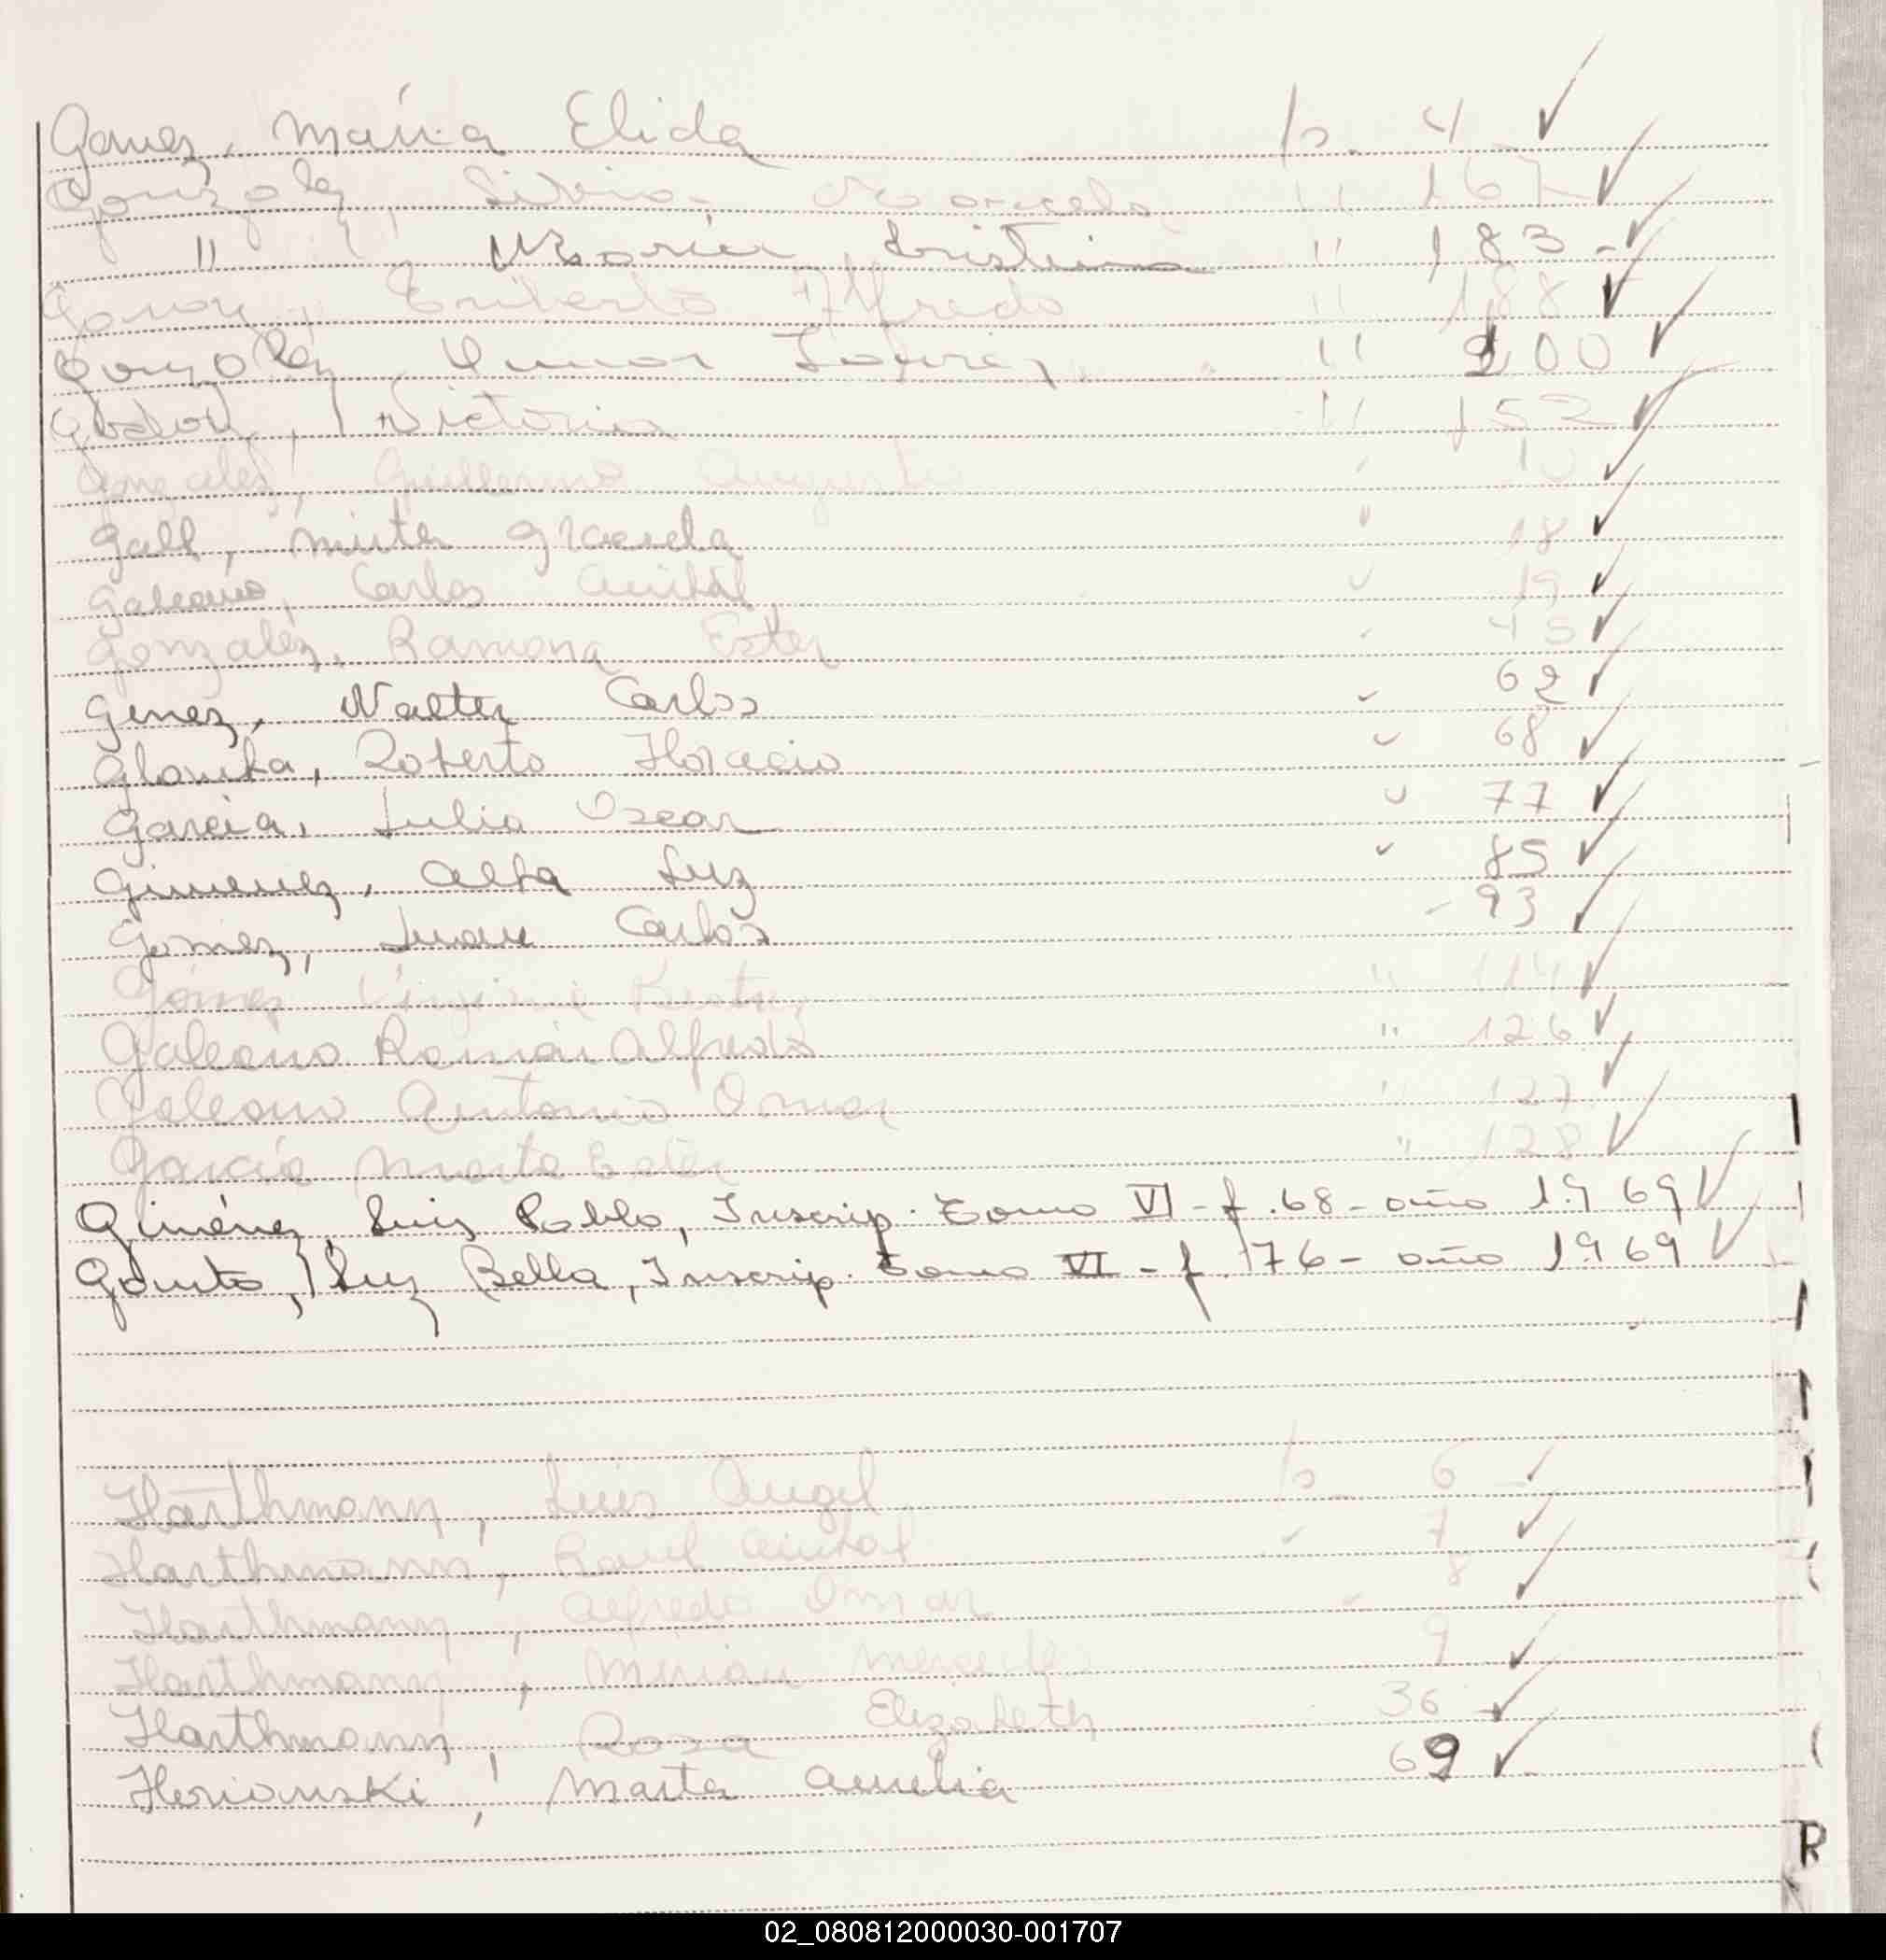 Gomez, María Elida fo. 4 ✓
Gonzalez, Silvia Marcela " 167 ✓
" María Cristina " 183 - ✓
Godoy, Eriberto Alfredo " 188 ✓
Gonzalez Omar " 200 ✓
Godoy, Victoria " 152 ✓
Gonzalez, Guillermo Augusto " 10 ✓
Gall, Mirta Graciela " 18 ✓
Galeano, Carlos Anibal " 19 ✓
Gonzalez, Ramona Ester " 45 ✓
Genez, Walter Carlos " 62 ✓
Glonika, Roberto Horacio " 68 ✓
Garcia, Julio Oscar " 77 ✓
Gimenez, Alba Luz " 85 ✓
Gomez, Juan Carlos " 93 ✓
Gómez Virginia " 114 ✓
Galeano Ramón Alfredo " 126 ✓
Galeano Antonio Omar " 127 ✓
García Marta Ester " 128 ✓
Giménez, Luis Pablo, Inscrip. Tomo VI - f. 68 - año 1969 ✓
Gauto, Luz Bella, Inscrip. Tomo VI - f. 176 - año 1969 ✓
Harthmann, Luis Angel fo. 6 ✓
Harthmann, Raul Anibal " 7 ✓
Harthmann, Alfredo Omar " 8 ✓
Harthmann, Mirian Mercedes 9 ✓
Harthmann, Rosa Elizabeth 36 ✓
Horianski, Marta Amelia 69 ✓
R
02_080812000030-001707